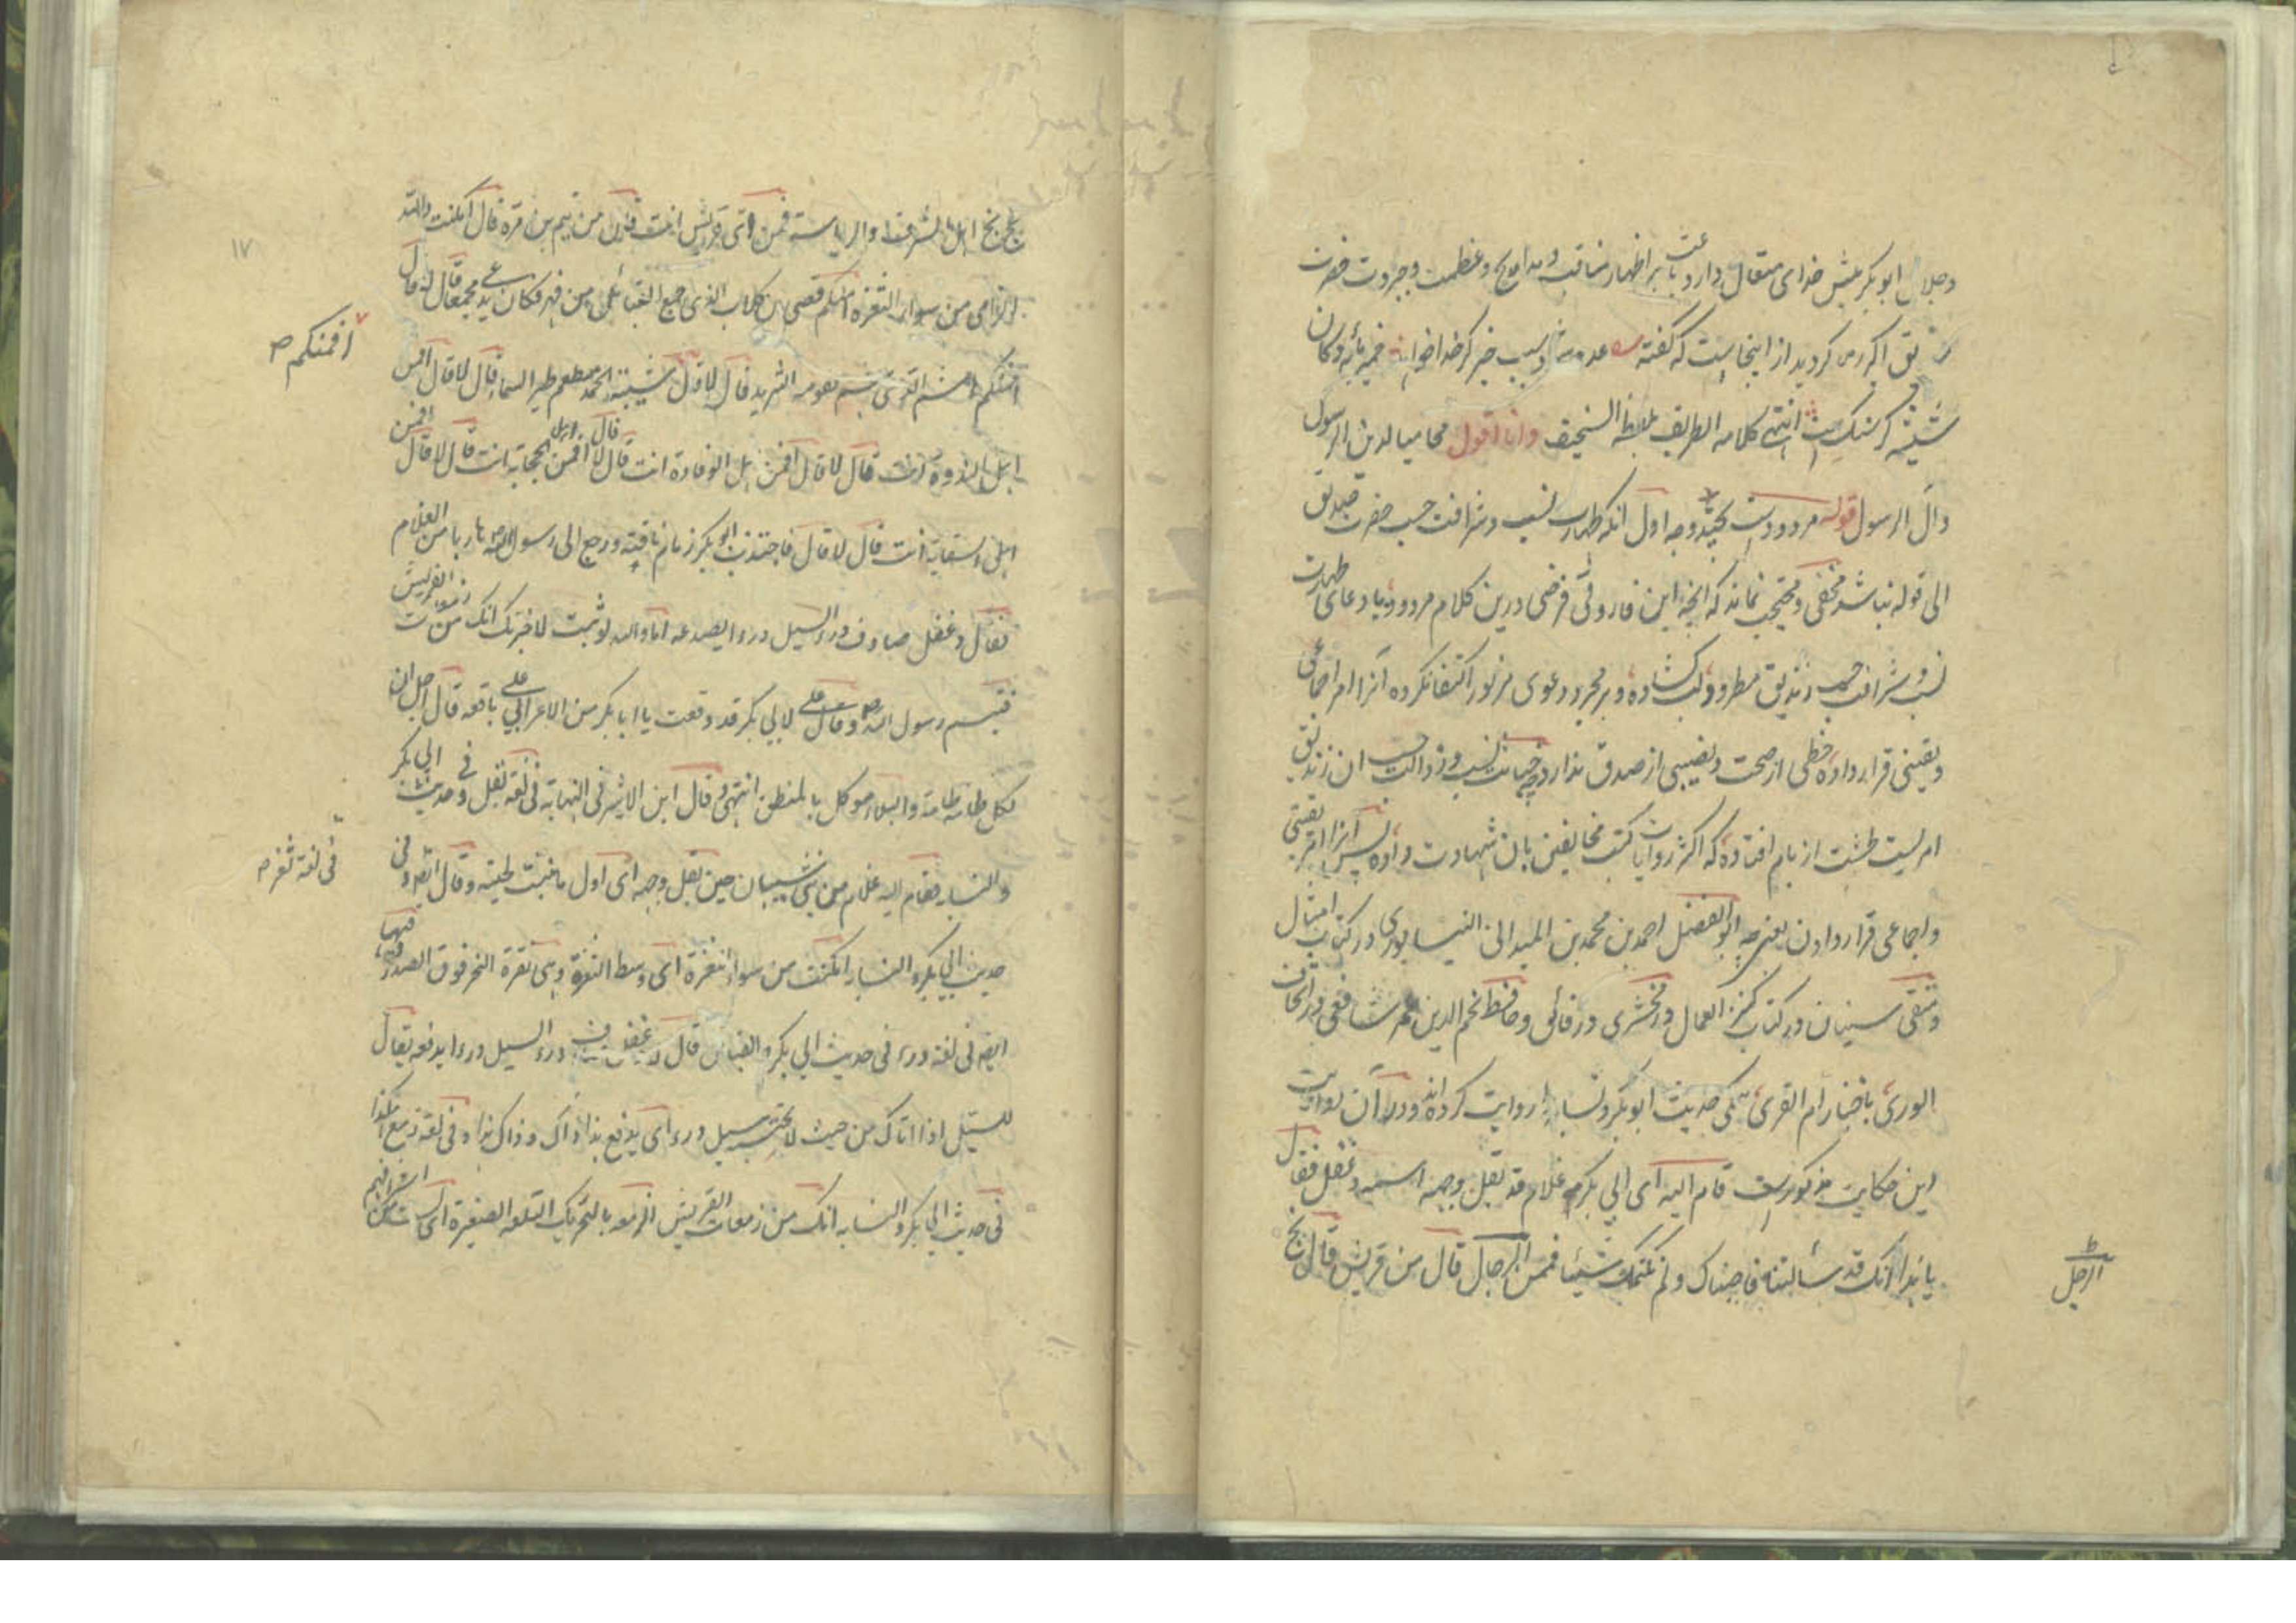 وجلال ابوبکر پیش خدای متعال دارد باعث بر اظهار مناقب و مدایح و عظمت و جبروت حضرت
اکبر گردید از اینجاست که گفته عدو سبب خیر گر خدا خواهد خمیر مایه دوکان
شیشه گر سنگ است انتهی کلامه الطریف بلفظه السخیف وانا اقول محامیا لدین الرسول
وال الرسول قوله مردودست بچند وجه اول آنکه طهارت نسب و شرافت حسب حضرت صدیق
الی قوله نباشد مخفی و محتجب نماند که آنچه این فاروقی فرضی درین کلام مردود بادعای طهارت
نسب و شرافت حسب زندیق مطرود لب گشاده و بر مجرد دعوی مزبور اکتفا نکرده آنرا امر اجماعی
و یقینی قرار داده حظی از صحت و نصیبی از صدق ندارد چه خباثت نسب و رذالت حسب ان زندیق
امریست طشت از بام افتاده که اکثر روایات کتب مخالفین بان شهادت داده پس آنرا امر یقینی
و اجماعی قرار دادن یعنی چه ابوالفضل احمد بن محمد بن المیدانی النیسابوری در کتاب امثال
و متقی سنیان در کتاب کنز العمال و زمخشری در فائق و حافظ نجم الدین عمر شافعی در اتحاف
الوری باخبار ام القری همگی حدیث ابوبکر و نسابه را روایت کرده اند و در آن روایت
این حکایت مذکورست قام الیه ای الی بکر غلام قد بقل وجهه اسمه دغفل فقال
یا هذا انک قد سألتنا فاجبناک ولم نکتمک شیئا فممن الرجال قال من قریش قال بخ
الرجل
۱۷
بخ بخ اهل الشرف والریاسة فمن ای قریش انت قال من تیم بن مرة قال امکنت والله
الرامی من سواء الثغرة امنکم قصی بن کلاب الذی جمع القبائل من فهر فکان یدعی مجمعا قال لا قال
أفمنکم
افمنکم هاشم الذی هشم لقومه الثرید قال لا قال شیبة الحمد مطعم طیر السماء قال لا قال افمن
اهل الندوة انت قال لا قال افمن اهل الوفادة انت قال لا قال افمن اهل الحجابة انت قال لا قال افمن
اهل السقایة انت قال لا قال فاجتذب ابوبکر زمام ناقته ورجع الی رسول الله هاربا من الغلام
فقال دغفل صادف درء السیل درءا یصدعه اما والله لو ثبت لاخبرتک انک من زمعات القریش
فتبسم رسول الله وقال علی لابی بکر قد وقعت یا ابا بکر من الاعرابی علی باقعة قال اجل ان
لکل طامة طامة والبلاء موکل بالمنطق انتهی وقال ابن الاثیر فی النهایة فی لغة بقل وفی حدیث ابی بکر
والنسابة فقام الیه غلام من بنی شیبان حین بقل وجهه ای اول ما نبتت لحیته وقال ایضا وفی
فی لغة ثغر
حدیث ابی بکر والنسابة امکنت من سواء الثغرة ای وسط الثغرة وهی نقرة النحر فوق الصدر وفیها
ایضا فی لغة درء فی حدیث ابی بکر و القبائل قال دغفل درء السیل درءا یدفعه یقال
للسیل اذا اتاک من حیث لا تحتسبه سیل درء ای یدفع هذا ذاک وذاک هذا وفی لغة زمع
فی حدیث ابی بکر والنسابة انک من زمعات القریش الزمعة بالتحریک التلعة الصغیرة ای لست من اشرافهم